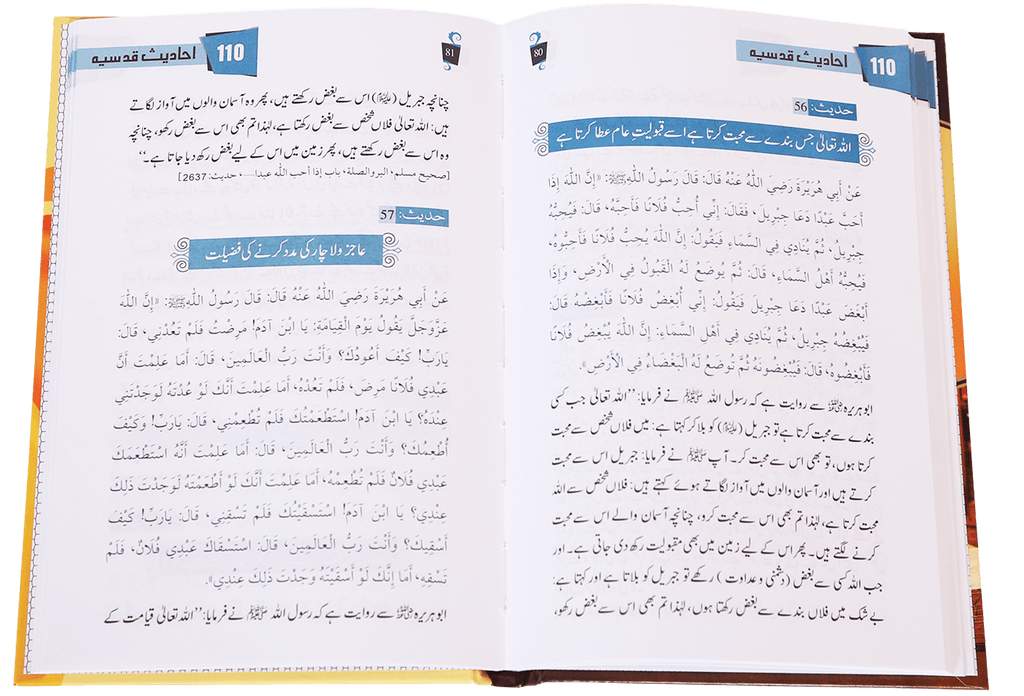 110
احادیث قدسیہ
80
حدیث: 56
اللہ تعالیٰ جس بندے سے محبت کرتا ہے اسے قبولیتِ عام عطا کرتا ہے
عَنْ أَبِي هُرَيْرَةَ رَضِيَ اللّٰهُ عَنْهُ قَالَ: قَالَ رَسُولُ اللّٰهِ ﷺ: «إِنَّ اللّٰهَ إِذَا
أَحَبَّ عَبْدًا دَعَا جِبْرِيلَ، فَقَالَ: إِنِّي أُحِبُّ فُلَانًا فَأَحِبَّهُ، قَالَ: فَيُحِبُّهُ
جِبْرِيلُ، ثُمَّ يُنَادِي فِي السَّمَاءِ فَيَقُولُ: إِنَّ اللّٰهَ يُحِبُّ فُلَانًا فَأَحِبُّوهُ،
فَيُحِبُّهُ أَهْلُ السَّمَاءِ، قَالَ: ثُمَّ يُوضَعُ لَهُ الْقَبُولُ فِي الْأَرْضِ، وَإِذَا
أَبْغَضَ عَبْدًا دَعَا جِبْرِيلَ فَيَقُولُ: إِنِّي أُبْغِضُ فُلَانًا فَأَبْغِضْهُ قَالَ:
فَيُبْغِضُهُ جِبْرِيلُ، ثُمَّ يُنَادِي فِي أَهْلِ السَّمَاءِ: إِنَّ اللّٰهَ يُبْغِضُ فُلَانًا
فَأَبْغِضُوهُ، قَالَ: فَيُبْغِضُونَهُ ثُمَّ تُوضَعُ لَهُ الْبَغْضَاءُ فِي الْأَرْضِ».
ابوہریرہ ؓ سے روایت ہے کہ رسول اللہ ﷺ نے فرمایا: ’’اللہ تعالیٰ جب کسی
بندے سے محبت کرتا ہے تو جبریل (علیہ السلام) کو بلا کر کہتا ہے: میں فلاں شخص سے محبت
کرتا ہوں، تو بھی اس سے محبت کر۔ آپ ﷺ نے فرمایا: جبریل اس سے محبت
کرتے ہیں اور آسمان والوں میں آواز لگاتے ہوئے کہتے ہیں: فلاں شخص سے اللہ
محبت کرتا ہے، لہٰذا تم بھی اس سے محبت کرو، چنانچہ آسمان والے اس سے محبت
کرنے لگتے ہیں۔ پھر اس کے لیے زمین میں بھی مقبولیت رکھ دی جاتی ہے۔ اور
جب اللہ کسی سے بغض (دشمنی و عداوت) رکھے تو جبریل کو بلاتا ہے اور کہتا ہے:
بے شک میں فلاں بندے سے بغض رکھتا ہوں، لہٰذا تم بھی اس سے بغض رکھو،
110
احادیث قدسیہ
81
چنانچہ جبریل (علیہ السلام) اس سے بغض رکھتے ہیں، پھر وہ آسمان والوں میں آواز لگاتے
ہیں: اللہ تعالیٰ فلاں شخص سے بغض رکھتا ہے، لہٰذا تم بھی اس سے بغض رکھو، چنانچہ
وہ اس سے بغض رکھتے ہیں، پھر زمین میں اس کے لیے بغض رکھ دیا جاتا ہے۔‘‘
[صحیح مسلم، البر والصلة، باب إذا أحب الله عبدا...، حدیث: 2637]
حدیث: 57
عاجز ولاچار کی مدد کرنے کی فضیلت
عَنْ أَبِي هُرَيْرَةَ رَضِيَ اللّٰهُ عَنْهُ قَالَ: قَالَ رَسُولُ اللّٰهِ ﷺ: «إِنَّ اللّٰهَ
عَزَّوَجَلَّ يَقُولُ يَوْمَ الْقِيَامَةِ: يَا ابْنَ آدَمَ! مَرِضْتُ فَلَمْ تَعُدْنِي، قَالَ:
يَارَبِّ! كَيْفَ أَعُودُكَ؟ وَأَنْتَ رَبُّ الْعَالَمِينَ، قَالَ: أَمَا عَلِمْتَ أَنَّ
عَبْدِي فُلَانًا مَرِضَ، فَلَمْ تَعُدْهُ، أَمَا عَلِمْتَ أَنَّكَ لَوْ عُدْتَهُ لَوَجَدْتَنِي
عِنْدَهُ؟ يَا ابْنَ آدَمَ! اسْتَطْعَمْتُكَ فَلَمْ تُطْعِمْنِي، قَالَ: يَارَبِّ! وَكَيْفَ
أُطْعِمُكَ؟ وَأَنْتَ رَبُّ الْعَالَمِينَ، قَالَ: أَمَا عَلِمْتَ أَنَّهُ اسْتَطْعَمَكَ
عَبْدِي فُلَانٌ فَلَمْ تُطْعِمْهُ، أَمَا عَلِمْتَ أَنَّكَ لَوْ أَطْعَمْتَهُ لَوَجَدْتَ ذَلِكَ
عِنْدِي؟ يَا ابْنَ آدَمَ! اسْتَسْقَيْتُكَ فَلَمْ تَسْقِنِي، قَالَ: يَارَبِّ! كَيْفَ
أَسْقِيكَ؟ وَأَنْتَ رَبُّ الْعَالَمِينَ، قَالَ: اسْتَسْقَاكَ عَبْدِي فُلَانٌ، فَلَمْ
تَسْقِهِ، أَمَا إِنَّكَ لَوْ أَسْقَيْتَهُ وَجَدْتَ ذَلِكَ عِنْدِي».
ابوہریرہ ؓ سے روایت ہے کہ رسول اللہ ﷺ نے فرمایا: ’’اللہ تعالیٰ قیامت کے